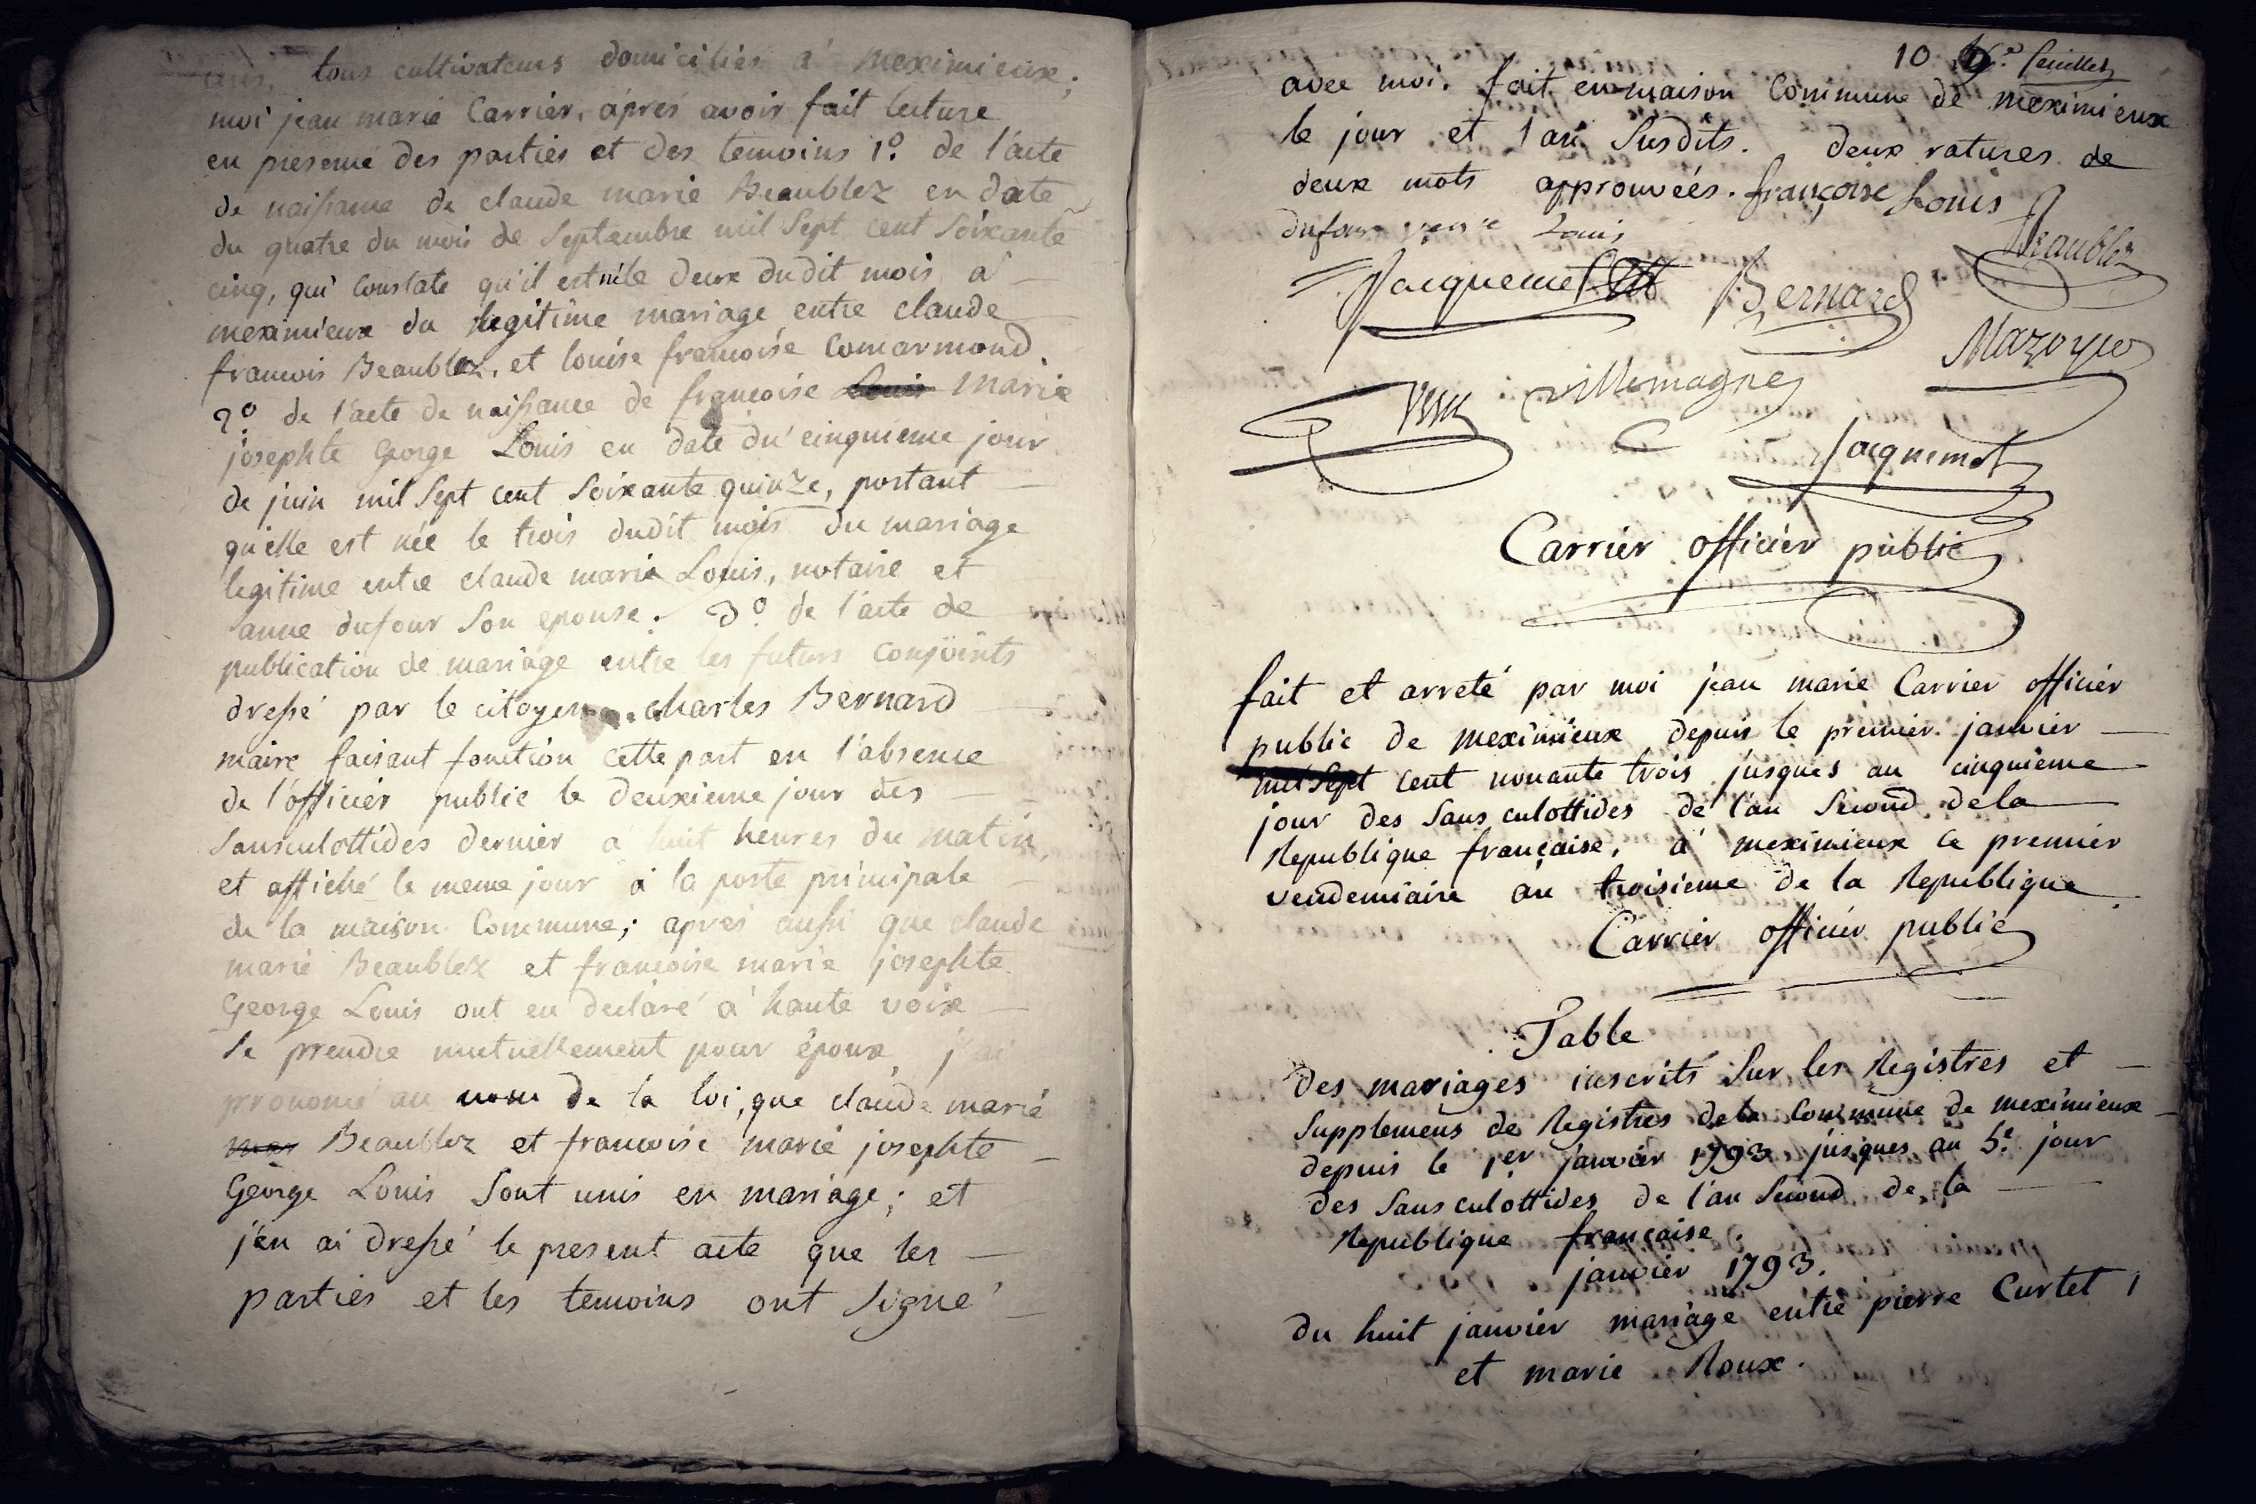 ans, tous cultivateurs domiciliés à meximieux;
moi jean marie Carrier, aprés avoir fait lecture
en presence des parties et des temoins 1.° de l'acte
de naissance de claude marie Beaublez en date
du quatre du mois de Septembre mil Sept cent Soixante
cinq, qui constate qu'il est né le deux dudit mois à
meximieux du legitime mariage entre claude
francois Beaublez, et louise francoise Comarmond.
2.° de l'acte de naissance de francoise Louis marie
josephte George Louis en date du cinquieme jour
de juin mil Sept cent Soixante quinze, portant
qu'elle est née le trois dudit mois du mariage
legitime entre claude marie Louis, notaire et
anne dufour Son epouse. 3.° de l'acte de
publication de mariage entre les futurs conjoints
dressé par le citoyen charles Bernard
maire faisant fonction cette part en l'absence
de l'officier public le deuxieme jour des
Sansculottides dernier a huit heures du matin,
et affiché le meme jour à la porte principale
de la maison Commune; aprés aussi que claude
marie Beaublez et francoise marie josephte
George Louis ont eu declaré à haute voix
Se prendre mutuellement pour époux, j'ai
prononcé au nom de la loi, que claude marie
mar Beaublez et francoise marie josephte
George Louis Sont unis en mariage; et
j'en ai dressé le present acte que les
parties et les temoins ont Signé
10 9.e feuillet
avec moi. fait en maison Commune de meximieux
le jour et l'an Susdits. deux ratures de
deux mots approuvéés. françoise Louis
dufour Louis Beaublez
Jacquemet Bernard
Mazoyer
villemagne
Jacquemet
Carrier officier public
fait et arreté par moi jean marie Carrier officier
public de meximieux depuis le premier janvier
mil Sept cent nonante trois jusques au cinquieme
jour des Sans culottides de l'an Second de la
Republique française, à meximieux ce premier
vendemiaire an troisieme de la Republique.
Carrier officier public
Table
des mariages inscrits Sur les Registres et
Supplemens de Registres de la Commune de meximieux
depuis le 1.er janvier 1793 jusques au 5.e jour
des Sans culottides de l'an Second de la
Republique française.
janvier 1793.
du huit janvier mariage entre pierre Curtet 1
et marie Roux.